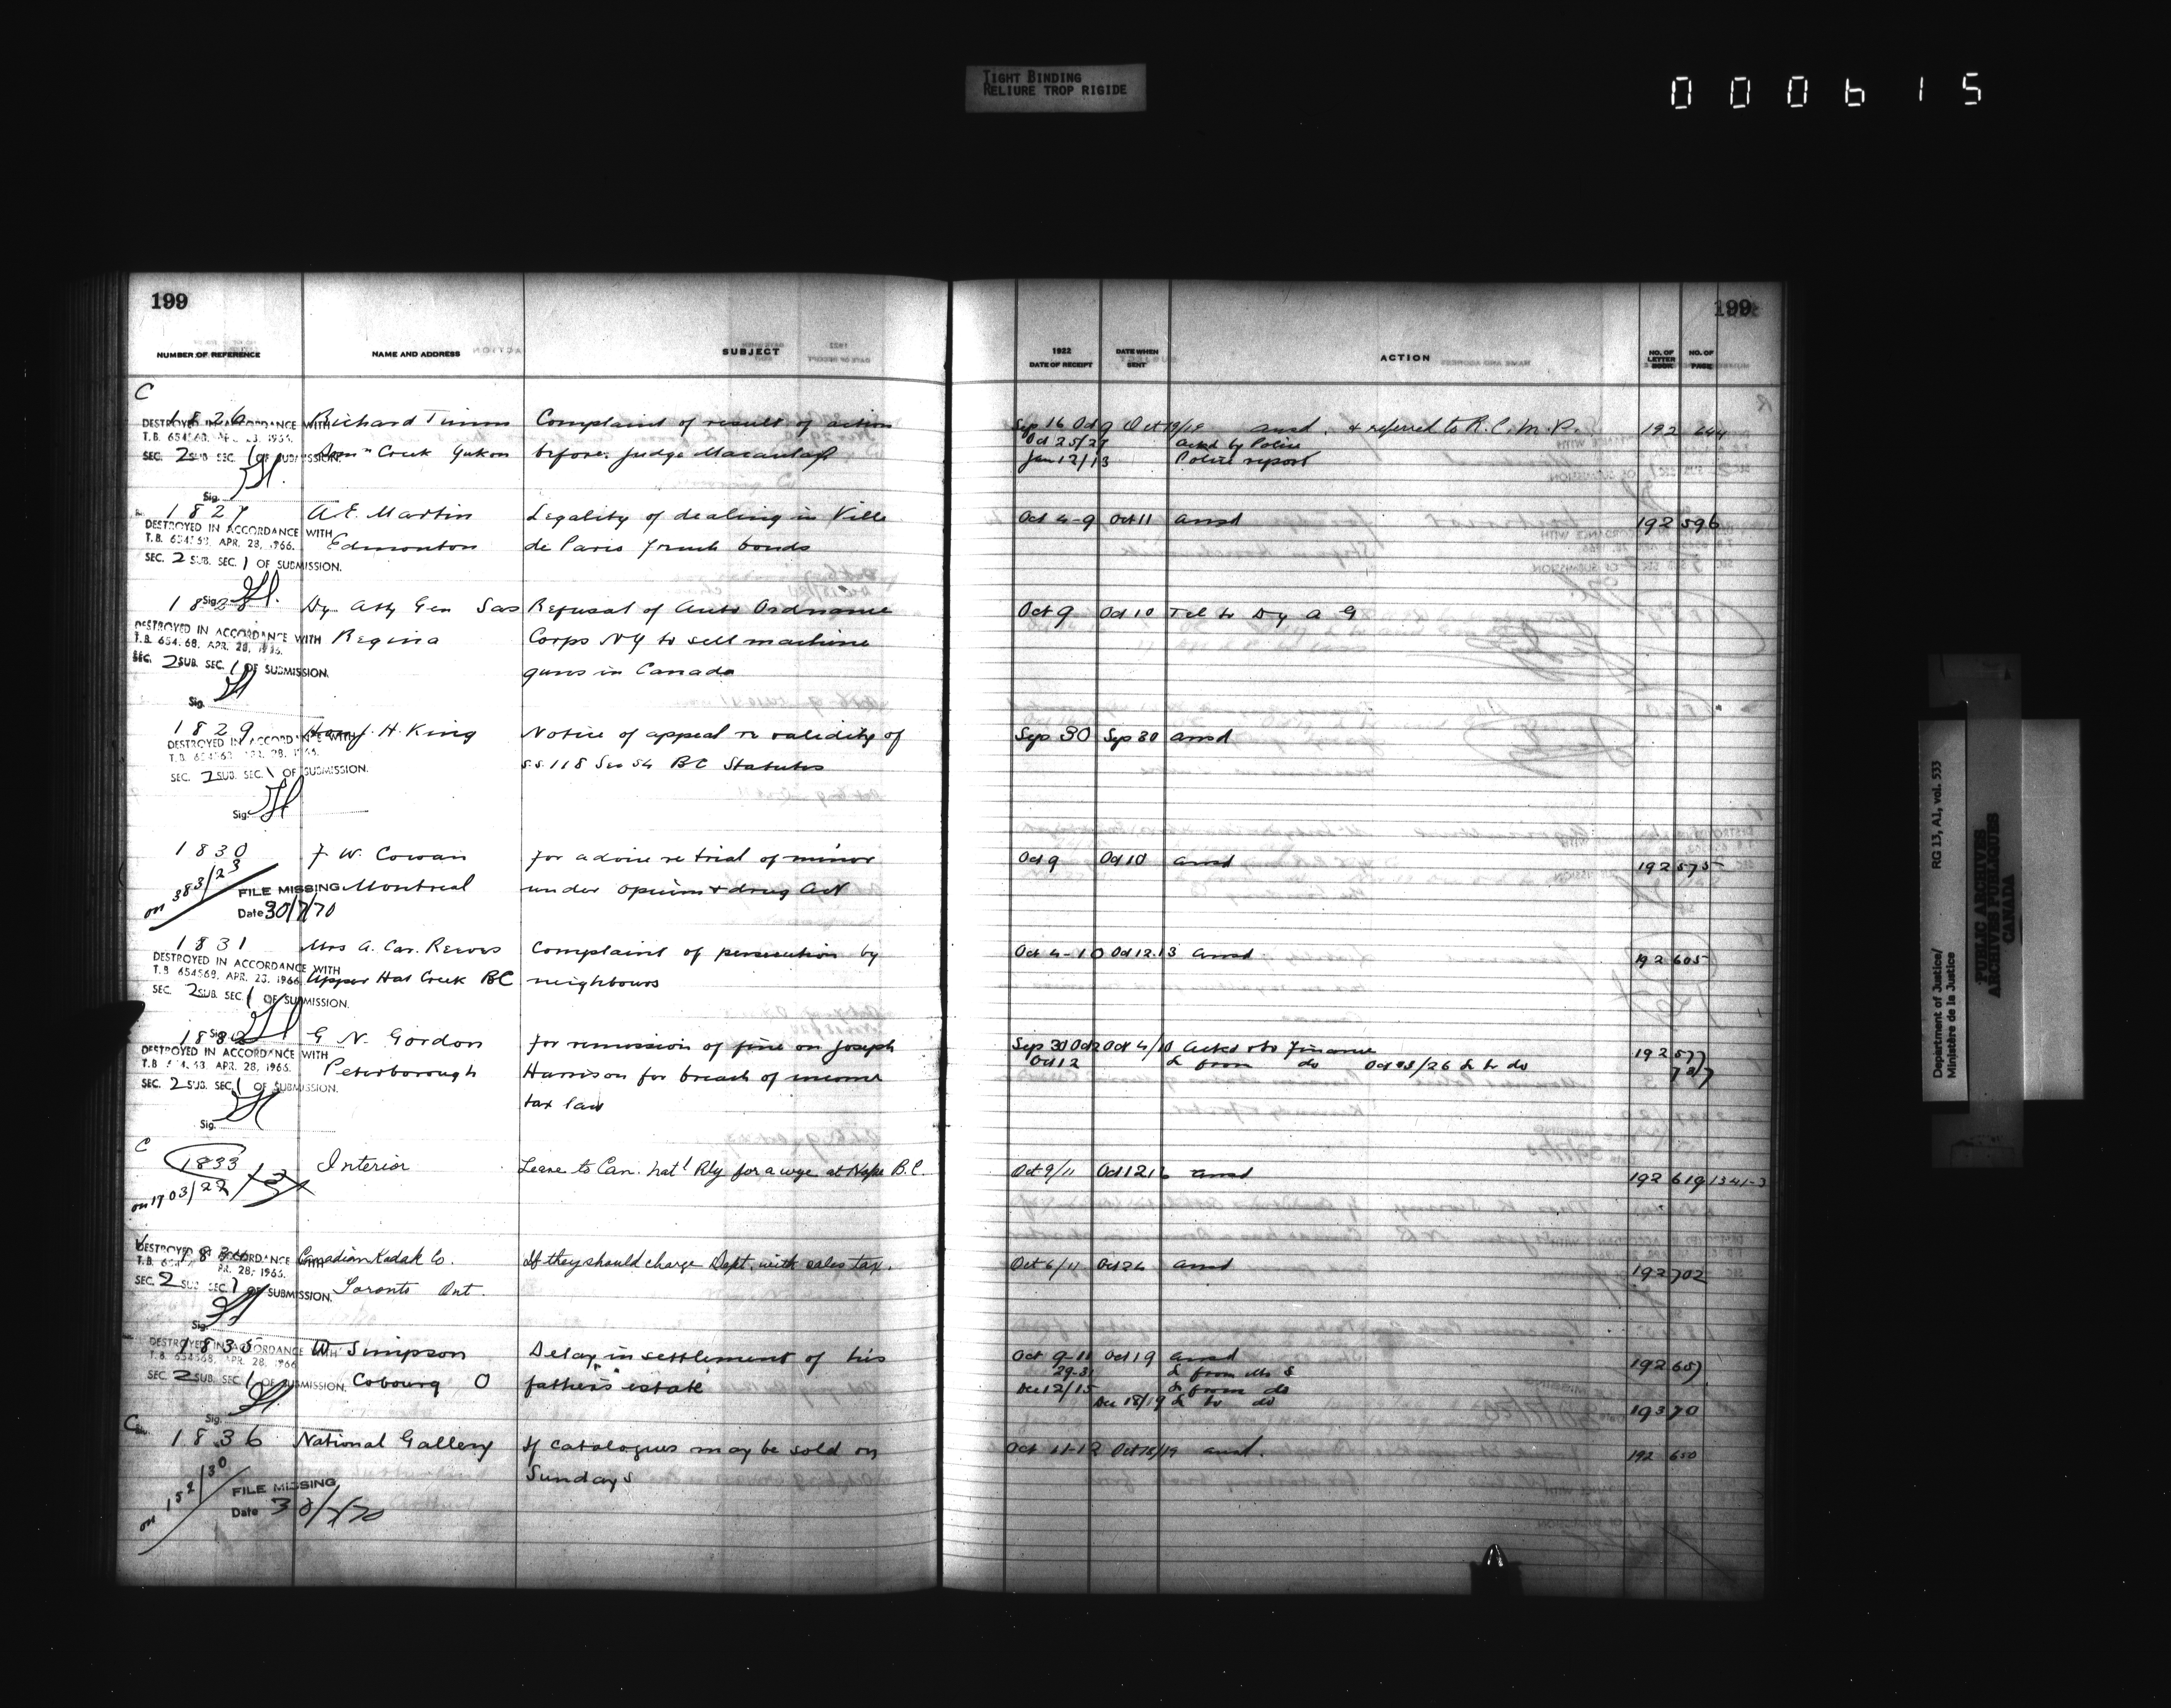 TIGHT BINDING
RELIURE TROP RIGIDE
000615
199
199
NUMBER OF REFERENCE NAME AND ADDRESS SUBJECT 1922 DATE OF RECEIPT DATE WHEN SENT ACTION NO. OF LETTER BOOK NO. OF PAGE
C
1826 Richard Timm Complaint of result of action Sep 16 Oct 9 Oct 19/19 ansd. & referred to R.C.M.P. 192 644
DESTROYED IN ACCORDANCE WITH
T.B. 654568, APR. 23, 1966. Oct 25/27 ackd by Police
SEC. 2 SUB SEC. 1 OF SUBMISSION. Creek Yukon before Judge Macaulay Jan 12/13 Police report
Sig.
1827 A.E. Martin Legality of dealing in Ville Oct 4-9 Oct 11 ansd 192 596
DESTROYED IN ACCORDANCE WITH
T.B. 654568, APR. 28, 1966. Edmonton de Paris french bonds
SEC. 2 SUB. SEC. 1 OF SUBMISSION.
Sig.
1828 Dy Atty Gen Sas Refusal of Auto Ordnance Oct 9 Oct 10 Tel to Dy A G
DESTROYED IN ACCORDANCE WITH
T.B. 654568, APR. 28, 1966. Regina Corps NY to sell machine
SEC. 2 SUB. SEC. 1 OF SUBMISSION. guns in Canada
Sig.
1829 Harry H. King Notice of appeal re validity of Sep 30 Sep 30 ansd
DESTROYED IN ACCORDANCE WITH
T.B. 654568, APR. 28, 1966. s.s. 118 Sec 54 BC Statutes
SEC. 2 SUB. SEC. 1 OF SUBMISSION.
Sig.
1830 F W. Cowan for advice re trial of minor Oct 9 Oct 10 ansd 192 575
on 383/23 FILE MISSING Montreal under opium & drug Act
Date 30/7/70
1831 Mrs A. Car. Complaint of persecution by Oct 4-10 Oct 12.13 ansd 192 605
DESTROYED IN ACCORDANCE WITH
T.B. 654568, APR. 23, 1966. Upper Hat Creek BC neighbours
SEC. 2 SUB. SEC. 1 OF SUBMISSION.
1832 G N. Gordon for remission of fine on Joseph Sep 30 Oct 2 Oct 4/10 Ackd & to Finance 192 577
Sig.
DESTROYED IN ACCORDANCE WITH Oct 12 L from do Oct 25/26 L to do 787
T.B. 654568, APR. 28, 1966. Peterborough Harrison for breach of income
SEC. 2 SUB. SEC. 1 OF SUBMISSION. tax law
Sig.
C
1833 Interior Lease to Can. Nat'l Rly for a wye at Hope B.C. Oct 9/11 Oct 12 13 ansd 192 619 1341-3
on 1703/22
1834 Canadian Kodak Co. If they should charge Dept. with sales tax. Oct 6/11 Oct 24 ansd 192 702
DESTROYED IN ACCORDANCE WITH
T.B. APR. 28, 1966.
SEC. 2 SUB. SEC. 1 OF SUBMISSION. Toronto Ont.
Sig.
1835 W Simpson Delay in settlement of his Oct 9-11 Oct 19 ansd 192 657
DESTROYED IN ACCORDANCE WITH
T.B. 654568, APR. 28, 1966. 29-31 L from Mr S
SEC. 2 SUB. SEC. 1 OF SUBMISSION. Cobourg O father's estate Dec 12/15 L from do
Sig. Dec 18/19 L to do 193 70
C
1836 National Gallery If catalogues may be sold on Oct 11-12 Oct 18/19 ansd. 192 650
Sundays
on 152/30 FILE MISSING
Date 30/7/70
Department of Justice/ RG 13, A1, vol. 533
Ministère de la Justice
PUBLIC ARCHIVES
ARCHIVES PUBLIQUES
CANADA